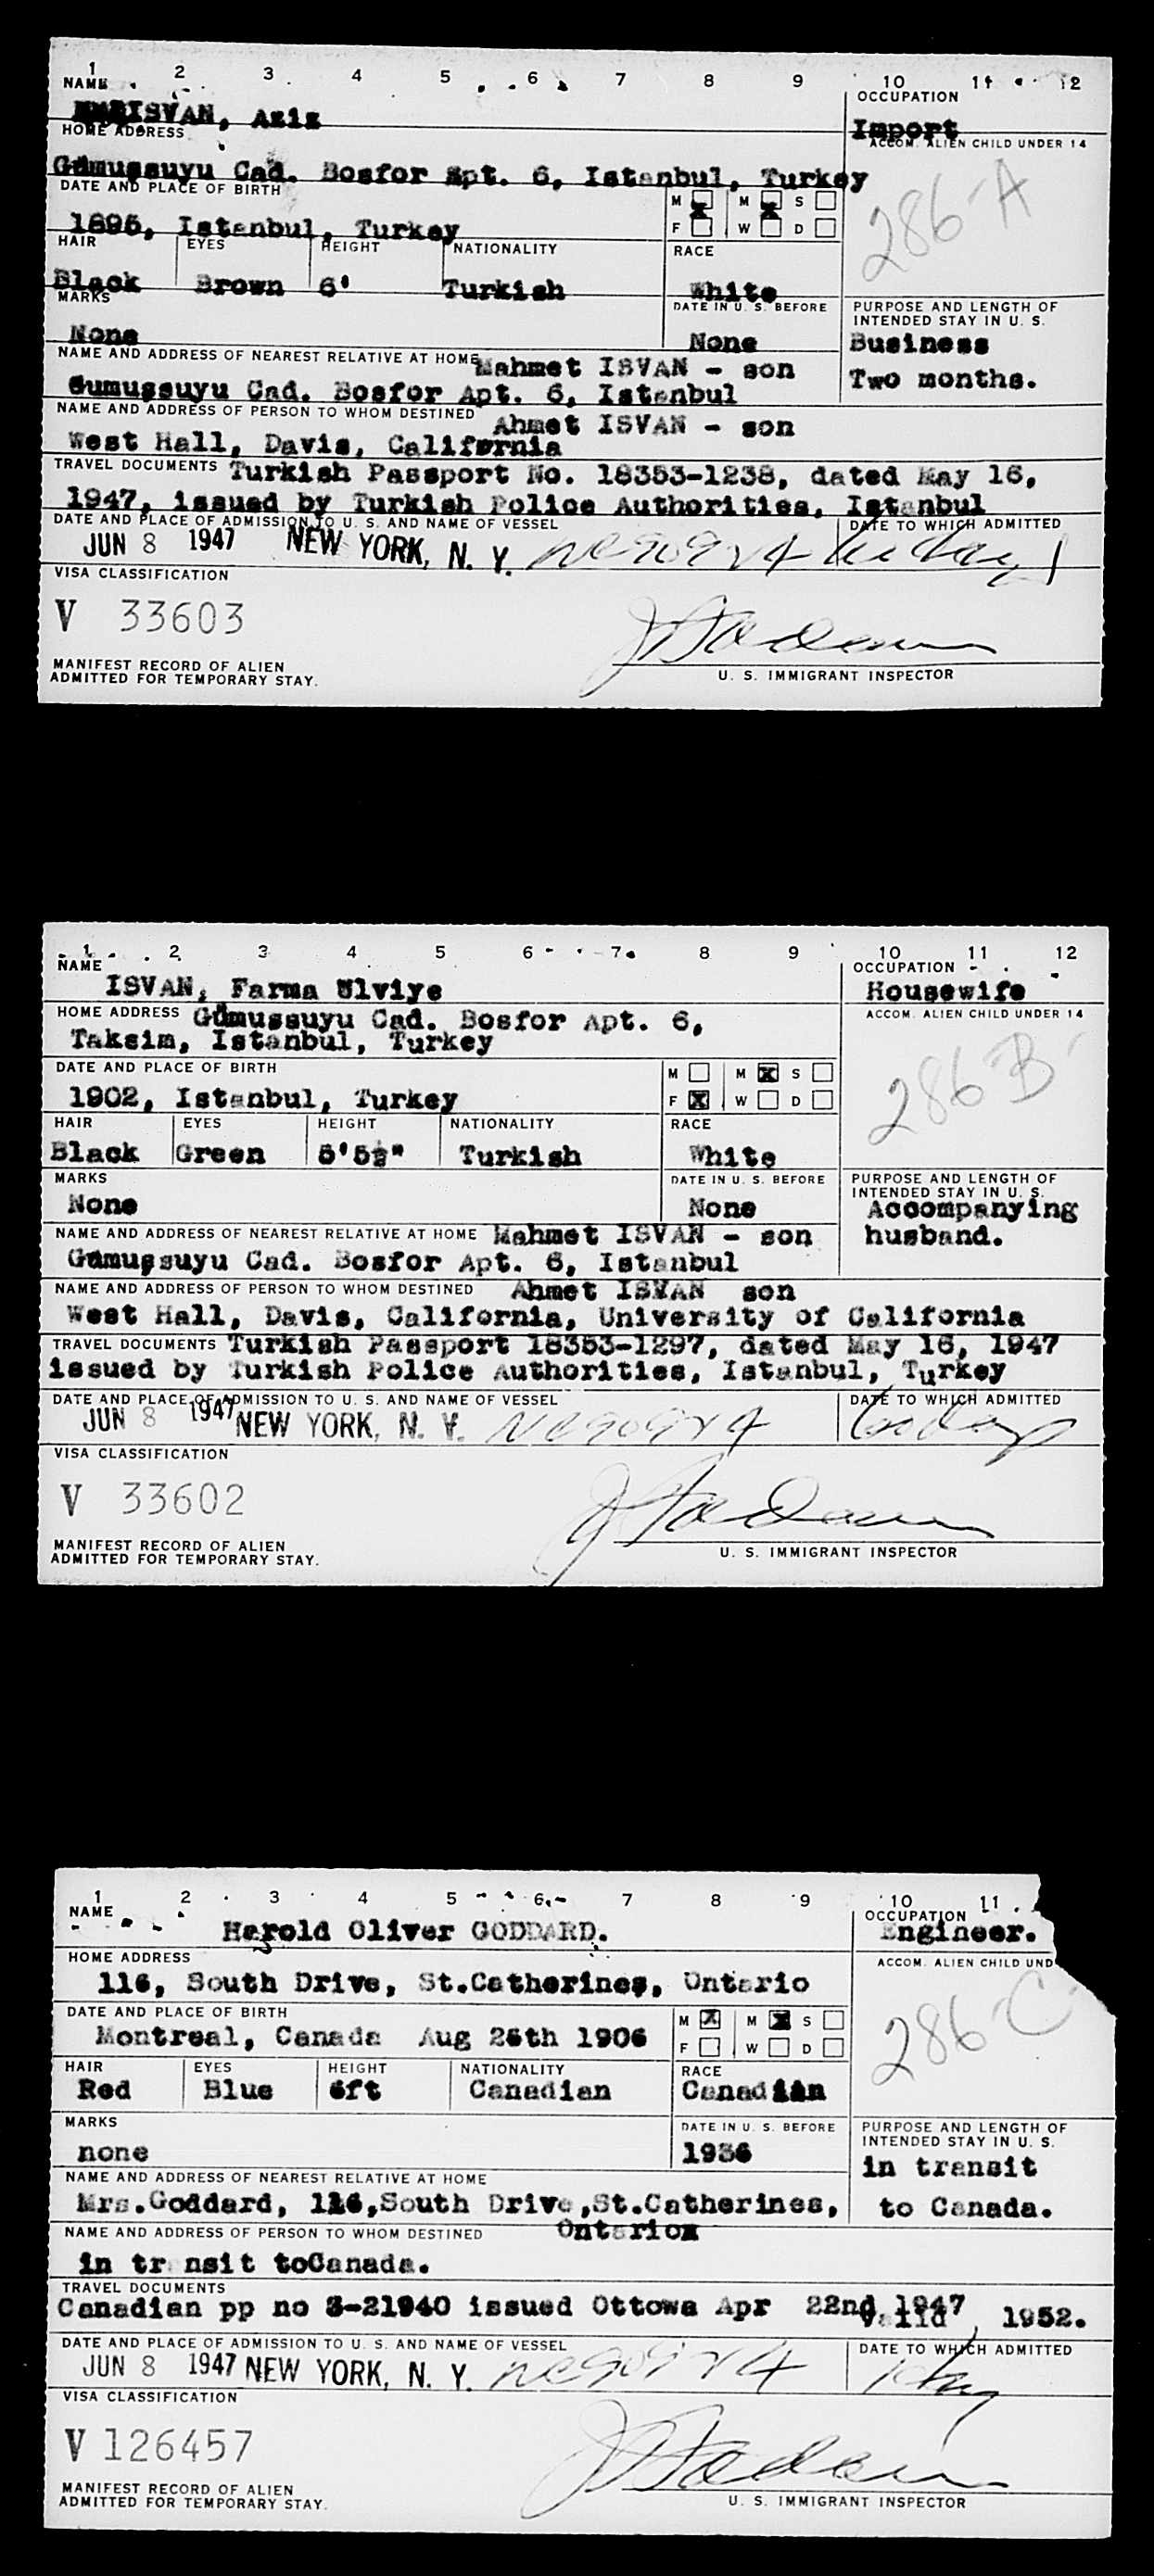 1 2 3 4 5 6 7 8 9 10 11 12
NAME OCCUPATION
ISVAN, Aziz Import
HOME ADDRESS ACCOM. ALIEN CHILD UNDER 14
Gümuşsuyu Cad. Bosfor Apt. 6, Istanbul, Turkey
286-A
DATE AND PLACE OF BIRTH M M S
1895, Istanbul, Turkey F W D
HAIR EYES HEIGHT NATIONALITY RACE
Black Brown 6' Turkish White
MARKS DATE IN U. S. BEFORE PURPOSE AND LENGTH OF INTENDED STAY IN U. S.
None None Business
NAME AND ADDRESS OF NEAREST RELATIVE AT HOME Mahmet ISVAN - son Two months.
Gumuşsuyu Cad. Bosfor Apt. 6, Istanbul
NAME AND ADDRESS OF PERSON TO WHOM DESTINED Ahmet ISVAN - son
West Hall, Davis, California
TRAVEL DOCUMENTS Turkish Passport No. 18353-1238, dated May 16,
1947, issued by Turkish Police Authorities, Istanbul
DATE AND PLACE OF ADMISSION TO U. S. AND NAME OF VESSEL DATE TO WHICH ADMITTED
JUN 8 1947 NEW YORK, N. Y. NC90924
VISA CLASSIFICATION
V 33603
MANIFEST RECORD OF ALIEN
ADMITTED FOR TEMPORARY STAY. U. S. IMMIGRANT INSPECTOR
1 2 3 4 5 6 7 8 9 10 11 12
NAME OCCUPATION
ISVAN, Farma Ulviye Housewife
HOME ADDRESS Gümussuyu Cad. Bosfor Apt. 6, ACCOM. ALIEN CHILD UNDER 14
Taksim, Istanbul, Turkey
286-B
DATE AND PLACE OF BIRTH M M X S
1902, Istanbul, Turkey F X W D
HAIR EYES HEIGHT NATIONALITY RACE
Black Green 5'5½" Turkish White
MARKS DATE IN U. S. BEFORE PURPOSE AND LENGTH OF INTENDED STAY IN U. S.
None None Accompanying
NAME AND ADDRESS OF NEAREST RELATIVE AT HOME Mahmet ISVAN - son husband.
Gümuşsuyu Cad. Bosfor Apt. 6, Istanbul
NAME AND ADDRESS OF PERSON TO WHOM DESTINED Ahmet ISVAN son
West Hall, Davis, California, University of California
TRAVEL DOCUMENTS Turkish Passport 18353-1297, dated May 16, 1947
issued by Turkish Police Authorities, Istanbul, Turkey
DATE AND PLACE OF ADMISSION TO U. S. AND NAME OF VESSEL DATE TO WHICH ADMITTED
JUN 8 1947 NEW YORK, N. Y. NC90924
VISA CLASSIFICATION
V 33602
MANIFEST RECORD OF ALIEN
ADMITTED FOR TEMPORARY STAY. U. S. IMMIGRANT INSPECTOR
1 2 3 4 5 6 7 8 9 10 11
NAME OCCUPATION
Harold Oliver GODDARD. Engineer.
HOME ADDRESS ACCOM. ALIEN CHILD UND
116, South Drive, St.Catherines, Ontario
286-C
DATE AND PLACE OF BIRTH M X M X S
Montreal, Canada Aug 26th 1906 F W D
HAIR EYES HEIGHT NATIONALITY RACE
Red Blue 6ft Canadian Canadian
MARKS DATE IN U. S. BEFORE PURPOSE AND LENGTH OF INTENDED STAY IN U. S.
none 1936 in transit
NAME AND ADDRESS OF NEAREST RELATIVE AT HOME
Mrs.Goddard, 116,South Drive,St.Catherines, to Canada.
NAME AND ADDRESS OF PERSON TO WHOM DESTINED Ontariox
in transit toCanada.
TRAVEL DOCUMENTS
Canadian pp no 3-21940 issued Ottowa Apr 22nd 1947 valid 1952.
DATE AND PLACE OF ADMISSION TO U. S. AND NAME OF VESSEL DATE TO WHICH ADMITTED
JUN 8 1947 NEW YORK, N. Y. NC90924
VISA CLASSIFICATION
V 126457
MANIFEST RECORD OF ALIEN
ADMITTED FOR TEMPORARY STAY. U. S. IMMIGRANT INSPECTOR